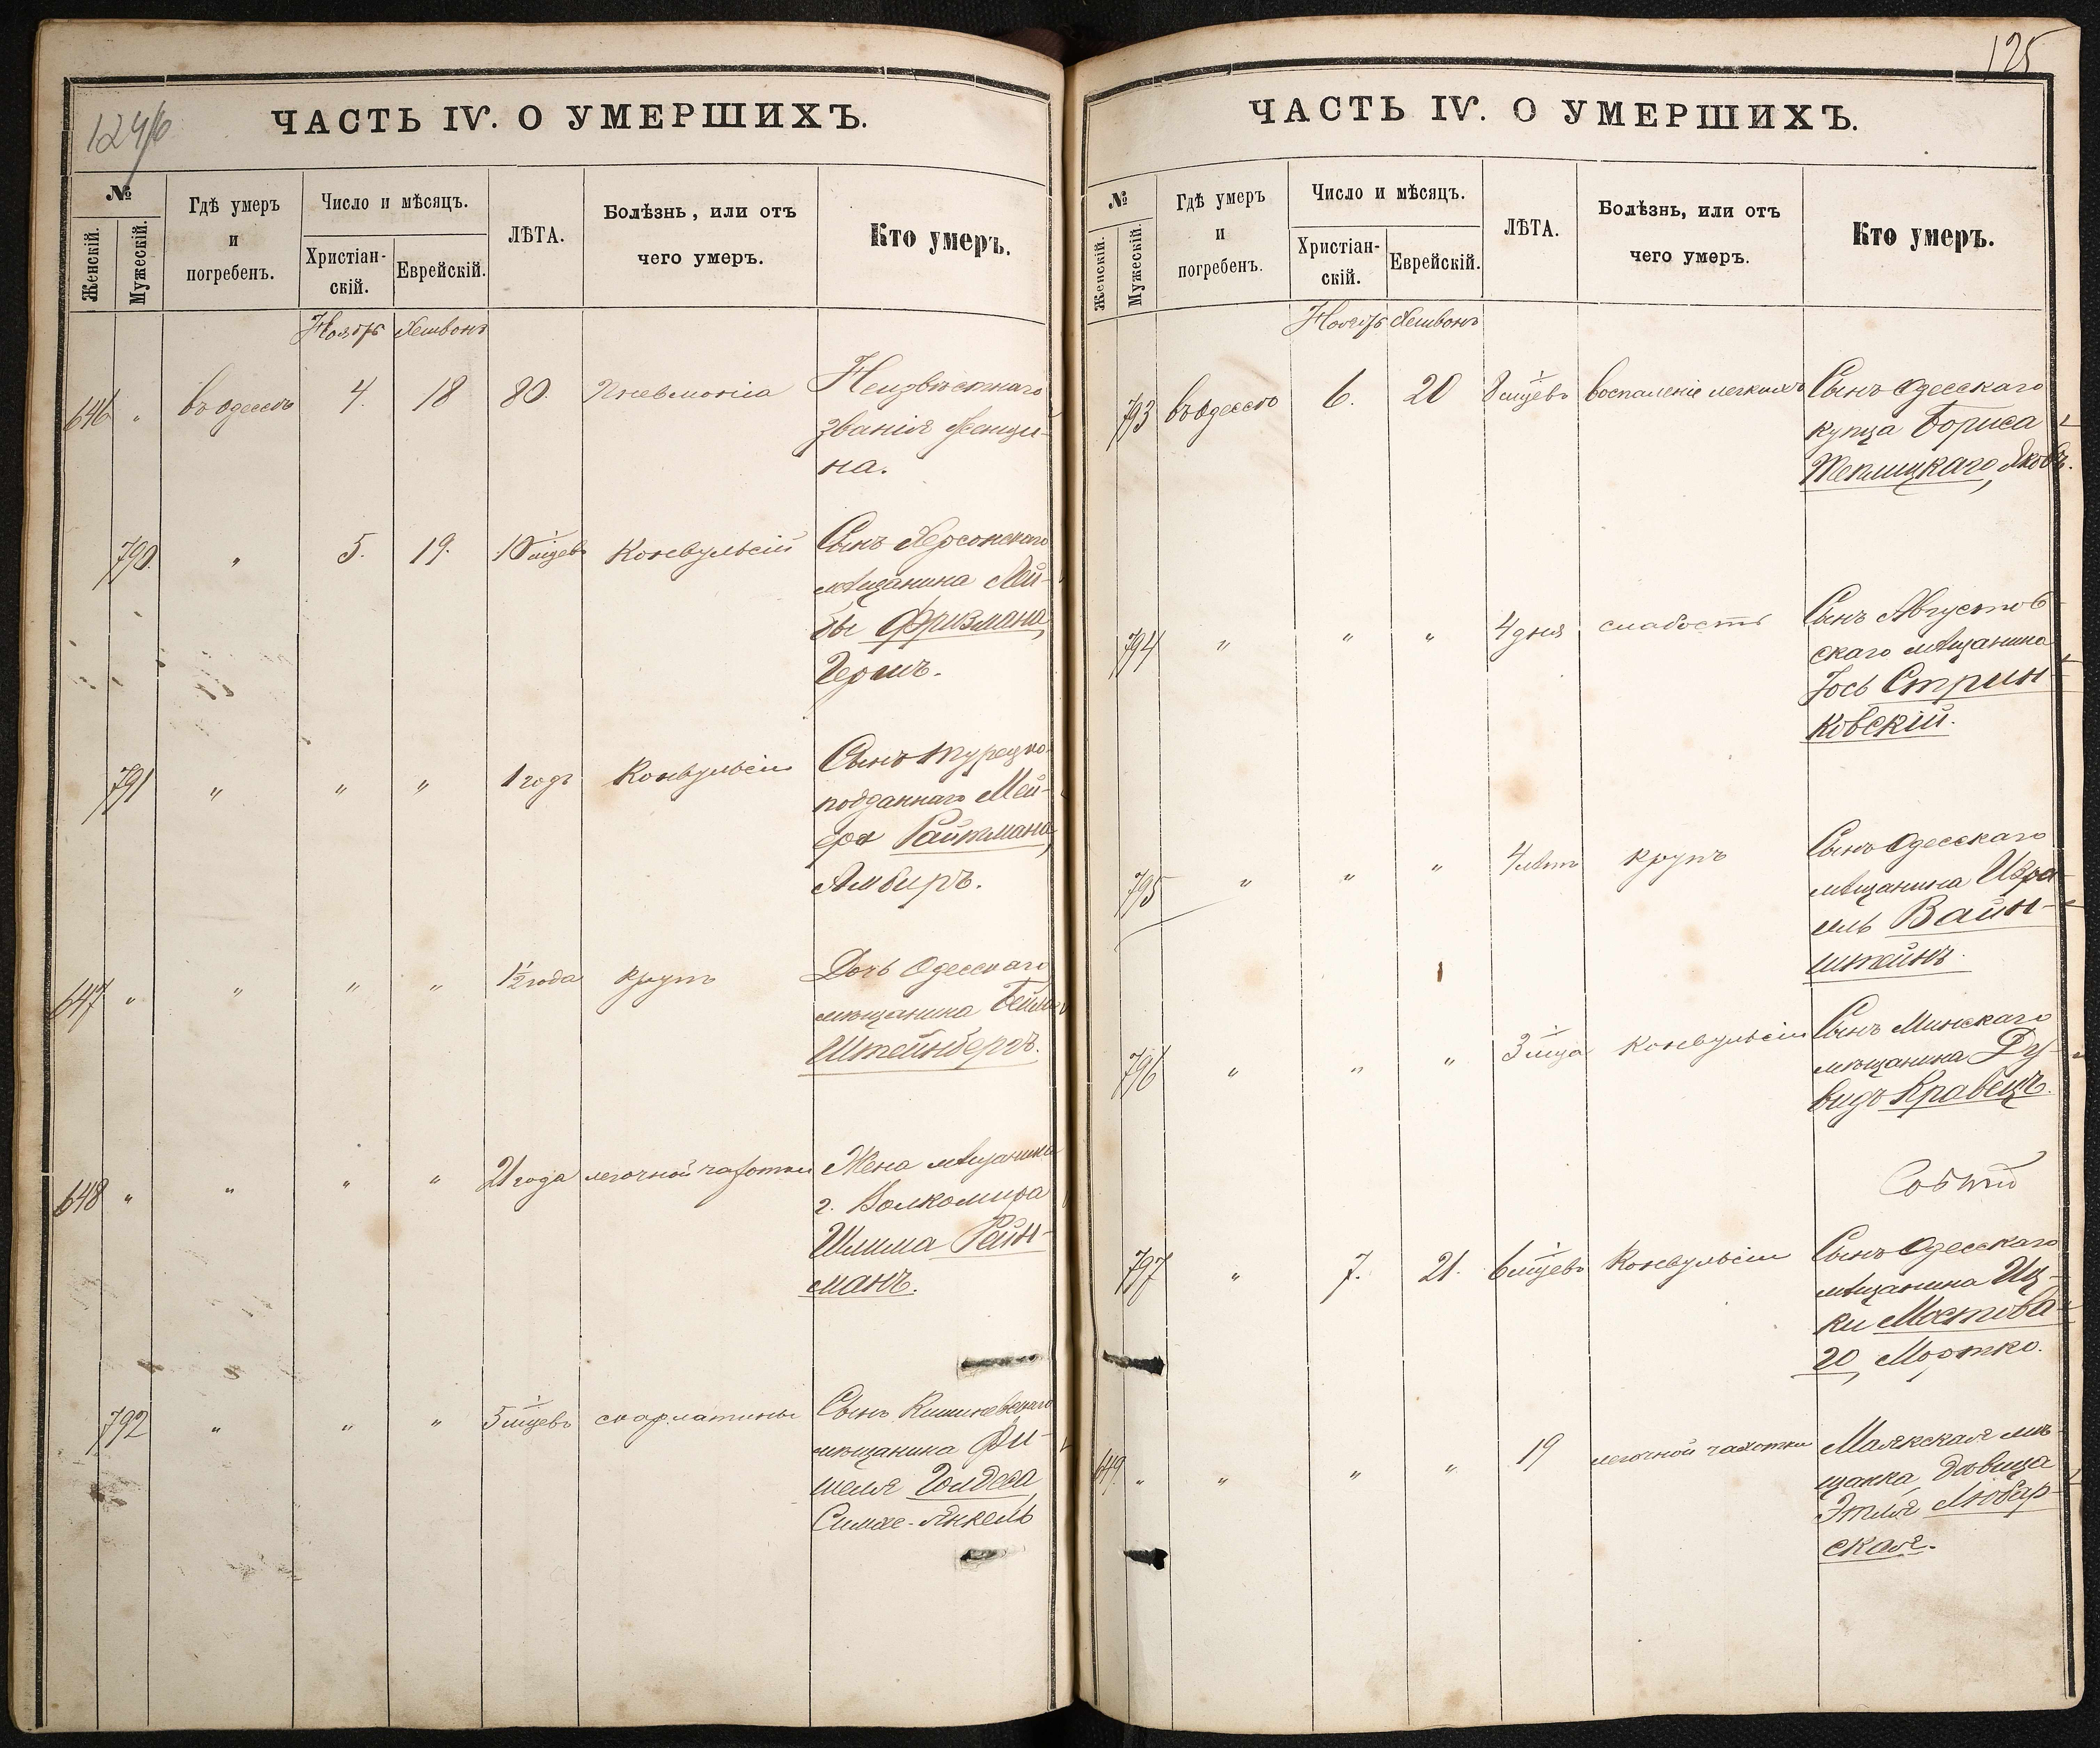 124/6
ЧАСТЬ IV. О УМЕРШИХЪ.
№
Женскій.
Мужескій.
Гдѣ умеръ
и
погребенъ.
Число и мѣсяцъ.
Христіан-
скій.
Еврейскій.
ЛѢТА.
Болѣзнь, или отъ
чего умеръ.
Кто умеръ.
Ноябрь Хешвонъ
646 " въ Одессѣ 4. 18 80. Пневмонiа Неизвѣстнаго
званія женщи-
на.
790. " 5. 19. 10 м҃цевъ Конвульсій Сынъ Херсонскаго
мѣщанина Лей-
бы Фризмана,
Гершъ.
791 " " " 1 годъ Конвульсіи Сынъ турецко-
подданнаго Мей-
ера Райтмана,
Альберъ.
647 " " " " 1½ года крупъ Дочь Одесскаго
мѣщанина Бейла
Штейнбергъ.
648 " " " " 21 года легочной чахотки Жена мѣщанина
г. Волкомира
Шлима Рейн-
манъ.
792 " " " 5 м҃цевъ скарлатины Сынъ Кишиневскаго
мѣщанина Фи-
шеля
Симхе-Янкель
125
ЧАСТЬ IV. О УМЕРШИХЪ.
№
Женскій.
Мужескій.
Гдѣ умеръ
и
погребенъ.
Число и мѣсяцъ.
Христіан-
скій.
Еврейскій.
ЛѢТА.
Болѣзнь, или отъ
чего умеръ.
Кто умеръ.
Ноябрь Хешвонъ
793 въ Одессѣ 6. 20 8 м҃цевъ воспаленіе легкихъ Сынъ Одесскаго
купца Бориса
Теплицкаго, Яковъ.
794 " " " 4 дня слабость Сынъ Августов-
скаго мѣщанина
Іось Стрин-
ковскій.
795 " " " 4 лѣтъ крупъ Сынъ Одесскаго
мѣщанина Изра-
иль Вайн-
штейнъ.
796 " " " 3 м҃ца Конвульсіи Сынъ Минскаго
мѣщанина Ду-
видъ Кравецъ.
797 " 7. 21. 6 м҃цевъ Конвульсіи Сынъ Одесскаго
мѣщанина Иц-
ки Мостова-
го, Мортко.
649. " " " " 19 легочной чахотки Маякская мѣ-
щанка, дѣвица
Этля Любар-
ская.